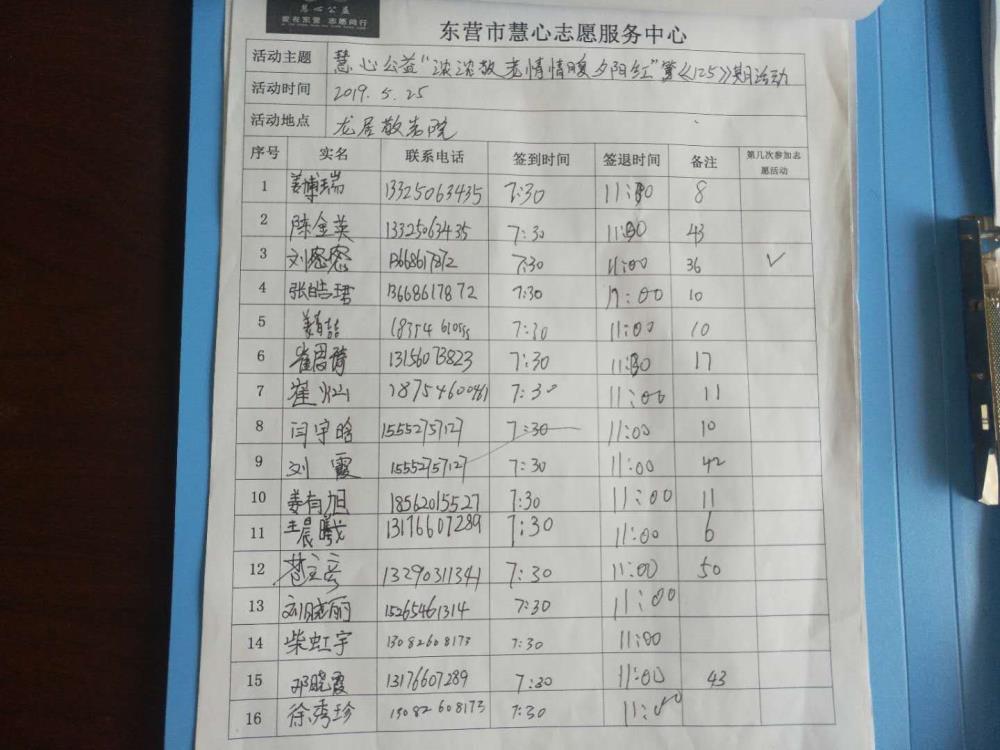 慧心公益
爱在东营 志愿同行
东营市慧心志愿服务中心
活动主题 慧心公益“浓浓敬老情情暖夕阳红”第《125》期活动
活动时间 2019.5.25
活动地点 龙居敬老院
序号 实名 联系电话 签到时间 签退时间 备注 第几次参加志愿活动
1 姜博瑞 13325063435 7:30 11:30 8
2 陈金英 13325063435 7:30 11:30 43
3 刘密密 7:30 11:00 36 ✓
4 张皓珺 13668617872 7:30 11:00 10
5 7:30 11:00 10
6 13156073823 7:30 11:30 17
7 崔灿 18754600461 7:30 11:00 11
8 闫宇晗 15552757127 7:30 11:00 10
9 刘霞 15552757127 7:30 11:00 42
10 姜有旭 18562015527 7:30 11:00 11
11 王晨曦 13176607289 7:30 11:00 6
12 13290311341 7:30 11:00 50
13 刘晓丽 15265461314 7:30 11:00
14 柴虹宇 13082608173 7:30 11:00
15 邓晓霞 13176607289 7:30 11:00 43
16 徐秀珍 13082608173 7:30 11:00